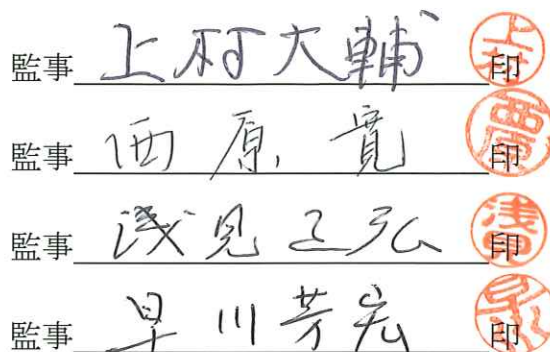 監事 上村大輔 印
監事 西原 寛 印
監事 浅見正弘 印
監事 早川芳宏 印